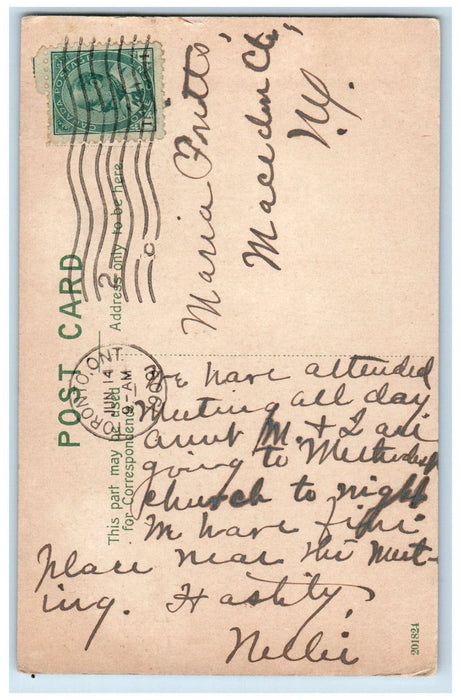 POST CARD
This part may be used
for Correspondence
Address only to be here
CANADA POSTAGE
TORONTO, ONT
JUN 14
9 - AM
2
C
Maria Potts
Macedon Ctr,
N.Y.
We have attended
Meeting all day
aunt M. + I are
going to Methodist
church to night
M have fine
place near the Meet-
ing. Hastily,
Nellie
201824